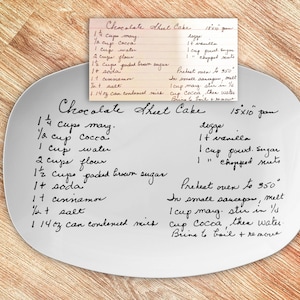 Chocolate Sheet Cake 15x10" pan
1 1/4 cups marg. eggs
1/2 cup cocoa 1 t vanilla
1 cup water 1 cup powd sugar
2 cups flour 1 " chopped nuts
1 1/2 cups packed brown sugar
1 t soda Preheat oven to 350°
1 t cinnamon In small saucepan, melt
1/2 t salt 1 cup marg. stir in 1/2
1 14 oz can condensed milk cup cocoa, then water
Bring to boil + remove
Chocolate Sheet Cake 15x10" pan
1 1/4 cups marg. eggs
1/2 cup cocoa 1 t vanilla
1 cup water 1 cup powd Sugar
2 cups flour 1 " chopped nuts
1 1/2 cups packed brown sugar
1 t soda Preheat oven to 350°
1 t cinnamon In small saucepan, melt
1/2 t salt 1 cup marg. stir in 1/2
1 14 oz can condensed milk cup cocoa, then water
Bring to boil + remove